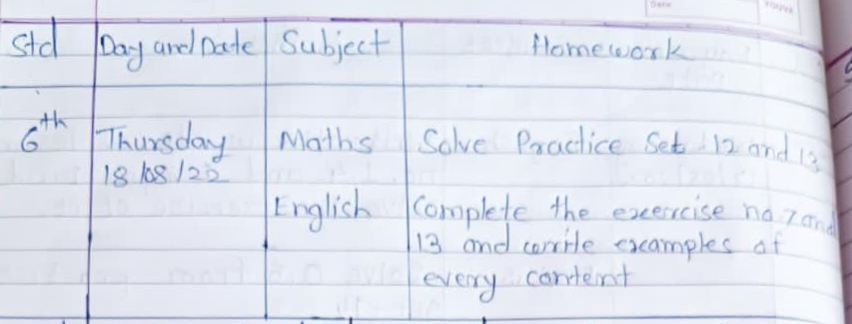 Std Day and Date Subject Homework
6th Thursday Maths Solve Practice Set 12 and 13
18/08/22
English Complete the exercise no 7 and
13 and write examples of
every content